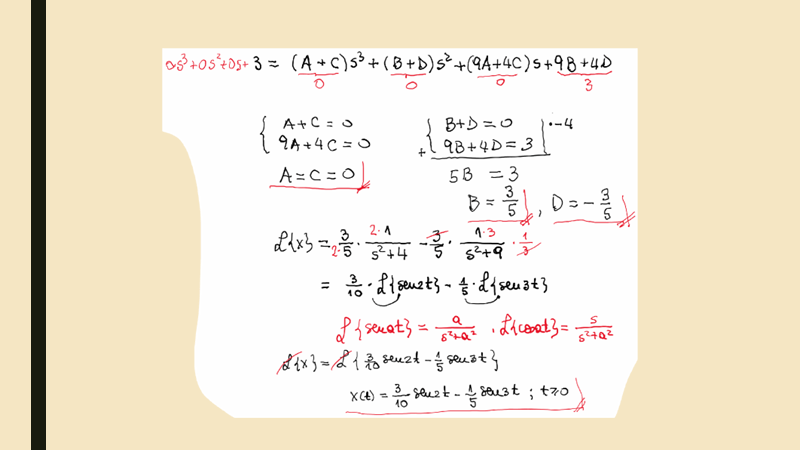 0s³+0s²+0s+3 = (A+C)s³+(B+D)s²+(9A+4C)s+9B+4D
0 0 0 3
{ A+C=0
9A+4C=0
A=C=0
{ B+D=0 | ·-4
+ 9B+4D=3
5B =3
B=3/5, D=-3/5
L{x} = 3/2·5 · 2·1/s²+4 - 3/5 · 1·3/s²+9 · 1/3
= 3/10 · L{sen2t} - 1/5 · L{sen3t}
L{senat} = a/s²+a², L{cosat} = s/s²+a²
L{x} = L{3/10 sen2t - 1/5 sen3t}
x(t) = 3/10 sen2t - 1/5 sen3t ; t≥0